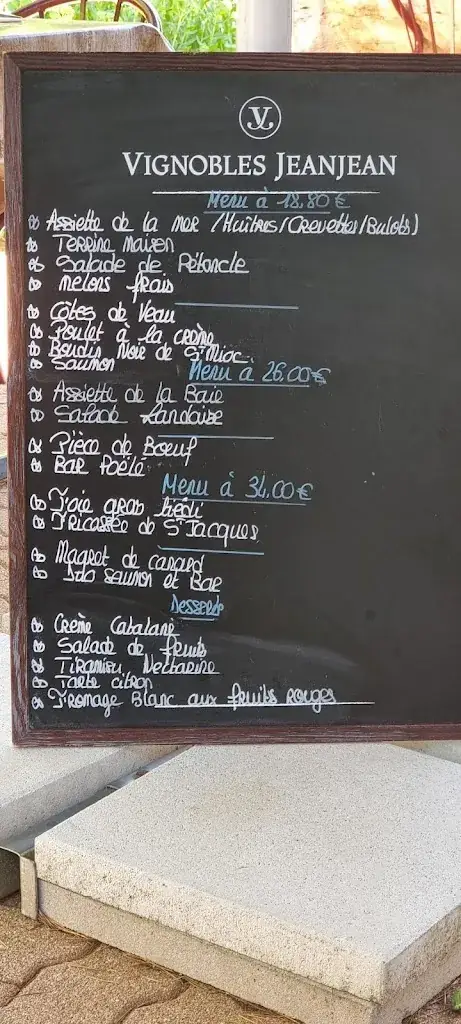 VJ
VIGNOBLES JEANJEAN
Menu à 18,80 €
Assiette de la mer /Huîtres/Crevettes/Bulots)
Terrine maison
Salade de Pétoncle
melons frais
Côtes de Veau
Poulet à la crème
Boudin Noir de St Mioc.
Saumon
Menu à 26,00€
Assiette de la Baie
Salade Landaise
Pièce de Boeuf
Bar Poêlé
Menu à 34,00€
Foie gras
Fricassée de St Jacques
Magret de canard
saumon et Bar
Desserts
Crème Catalane
Salade de fruits
Tiramisu Nectarine
Tarte citron
Fromage Blanc aux fruits rouges